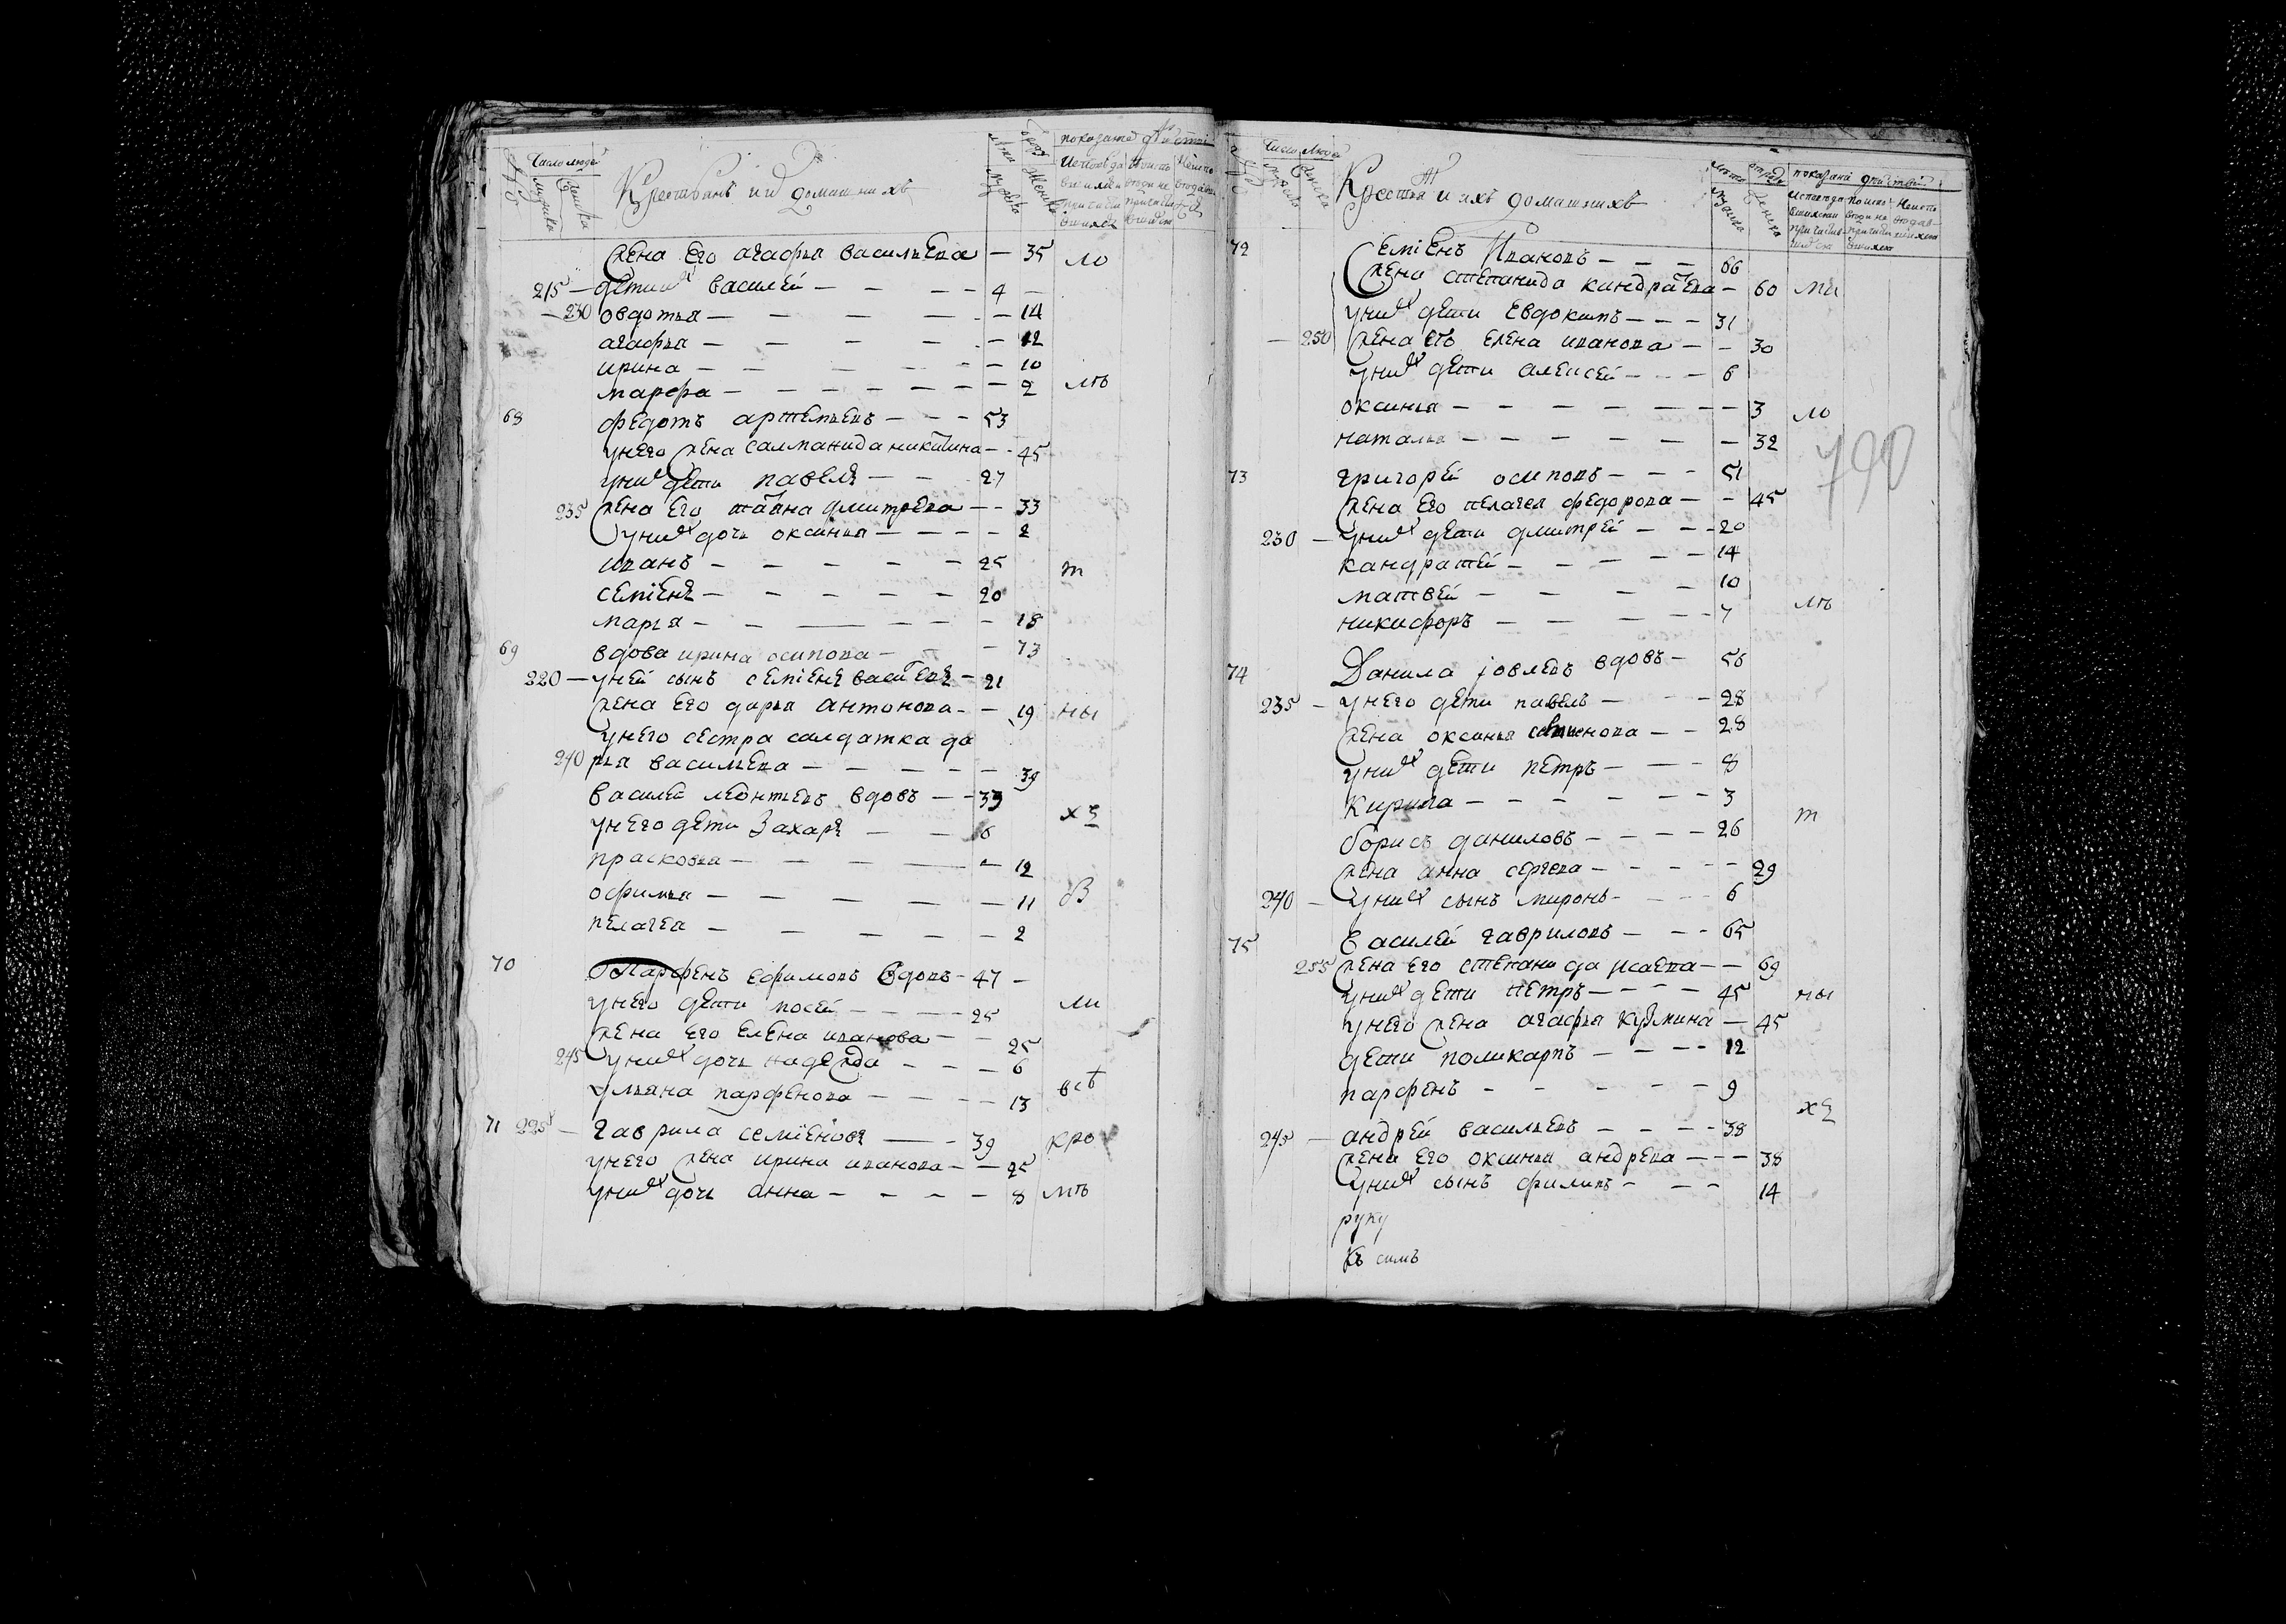 Число людей
Крестьянъ и их домашнихъ
показание действ
жена его агафья васильева — 35 ло
215 — дети их василей — — — 4
230 овдотья — — — — — 14
агафья — — — — — 12
ирина — — — — — 10
марфа — — — — — — 2 мъ
68 федотъ артемьевъ — — — 53
у него жена саламанида никитина — 45
у них дети павелъ — — 27
235 жена его татияна дмитрева — — 33
у них дочь оксинья — — — — 2
иванъ — — — — — 25 т
семіенъ — — — — — 20
марья — — — — — — 18
69 вдова ирина осипова — — 73
220 — у ней сынъ семіенъ василевъ — 21
жена его дарья антонова — — 19 ны
у него сестра салдатка да
240 рья васильева — — — — — 39
василей леонтьевъ вдовъ — — 39 хъ
у него дети захаръ — — 6
прасковья — — — — — 12
офимья — — — — — 11 бъ
пелагея — — — — — 2
70 Парфенъ ефимовъ вдовъ — 47 —
у него дети мосей — — — 25 ли
жена его елена иванова — — 25
245 у них дочь надежда — — — 6
ульяна парфенова — — — — 13 всѣ
71 225 — гаврила семіеновъ — — 39 кро
у него жена ирина иванова — — 25
у них дочь анна — — — — 8 мъ
Число людей
Крестья и ихъ домашнихъ
показание действ
72 Семіенъ Ивановъ — — — 66
жена степанида кандратева — 60 ми
у них дети евдокимъ — — — 31
— 250 жена его елена иванова — — 30
у них дети алексей — — — 6
оксинья — — — — — — — 3 ло
наталья — — — — — — 32
790
73 григорей осиповъ — — — 51
жена его пелагея федорова — — 45
230 — у них дети дмитрей — — — 20
кандратей — — — — — 14
матвей — — — — 10
никифоръ — — — — 7 мъ
74 Данила іовлевъ вдовъ — 56
235 — у него дети павелъ — — — 28
жена оксинья — — 28
у них дети петръ — — — 8
кирила — — — — — — 3
борисъ даниловъ — — — — 26 т
жена анна сергева — — — — — 29
240 — у них сынъ миронъ — — — 6
75 Василей гавриловъ — — — 65
255 жена его степанида исаева — — 69
у них дети петръ — — — — 45 ны
у него жена агафья кузмина — 45
дети поликарпъ — — — — 12
парфенъ — — — — — 9
хъ
245 — андрей васильевъ — — — — 38
жена его оксинья андрева — — — 38
у них сынъ филипъ — — — 14
руку
Къ симъ